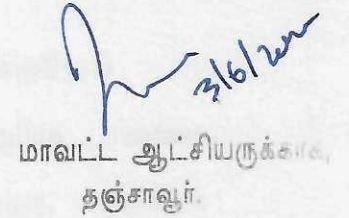 3/6/2020
மாவட்ட ஆட்சியருக்காக,
தஞ்சாவூர்.